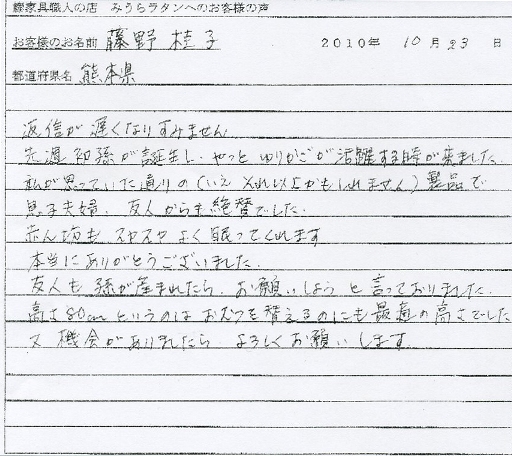 籐家具職人の店　みうらラタンへのお客様の声
お客様のお名前 藤野 桂子 2010年 10月 23日
都道府県名 熊本県
返信が遅くなりすみません
先週初孫が誕生し、やっとゆりかごが活躍する時が来ました.
私が思っていた通りの(いえ それ以上かもしれません) 製品で
息子夫婦、友人からも絶賛でした.
赤ん坊も スヤスヤ よく眠ってくれます
本当にありがとうございました.
友人も 孫が産まれたら、お願いしよう と言っておりました.
高さ80cmというのは おむつを替えるのにも最適の高さでした
又 機会がありましたら よろしくお願いします.